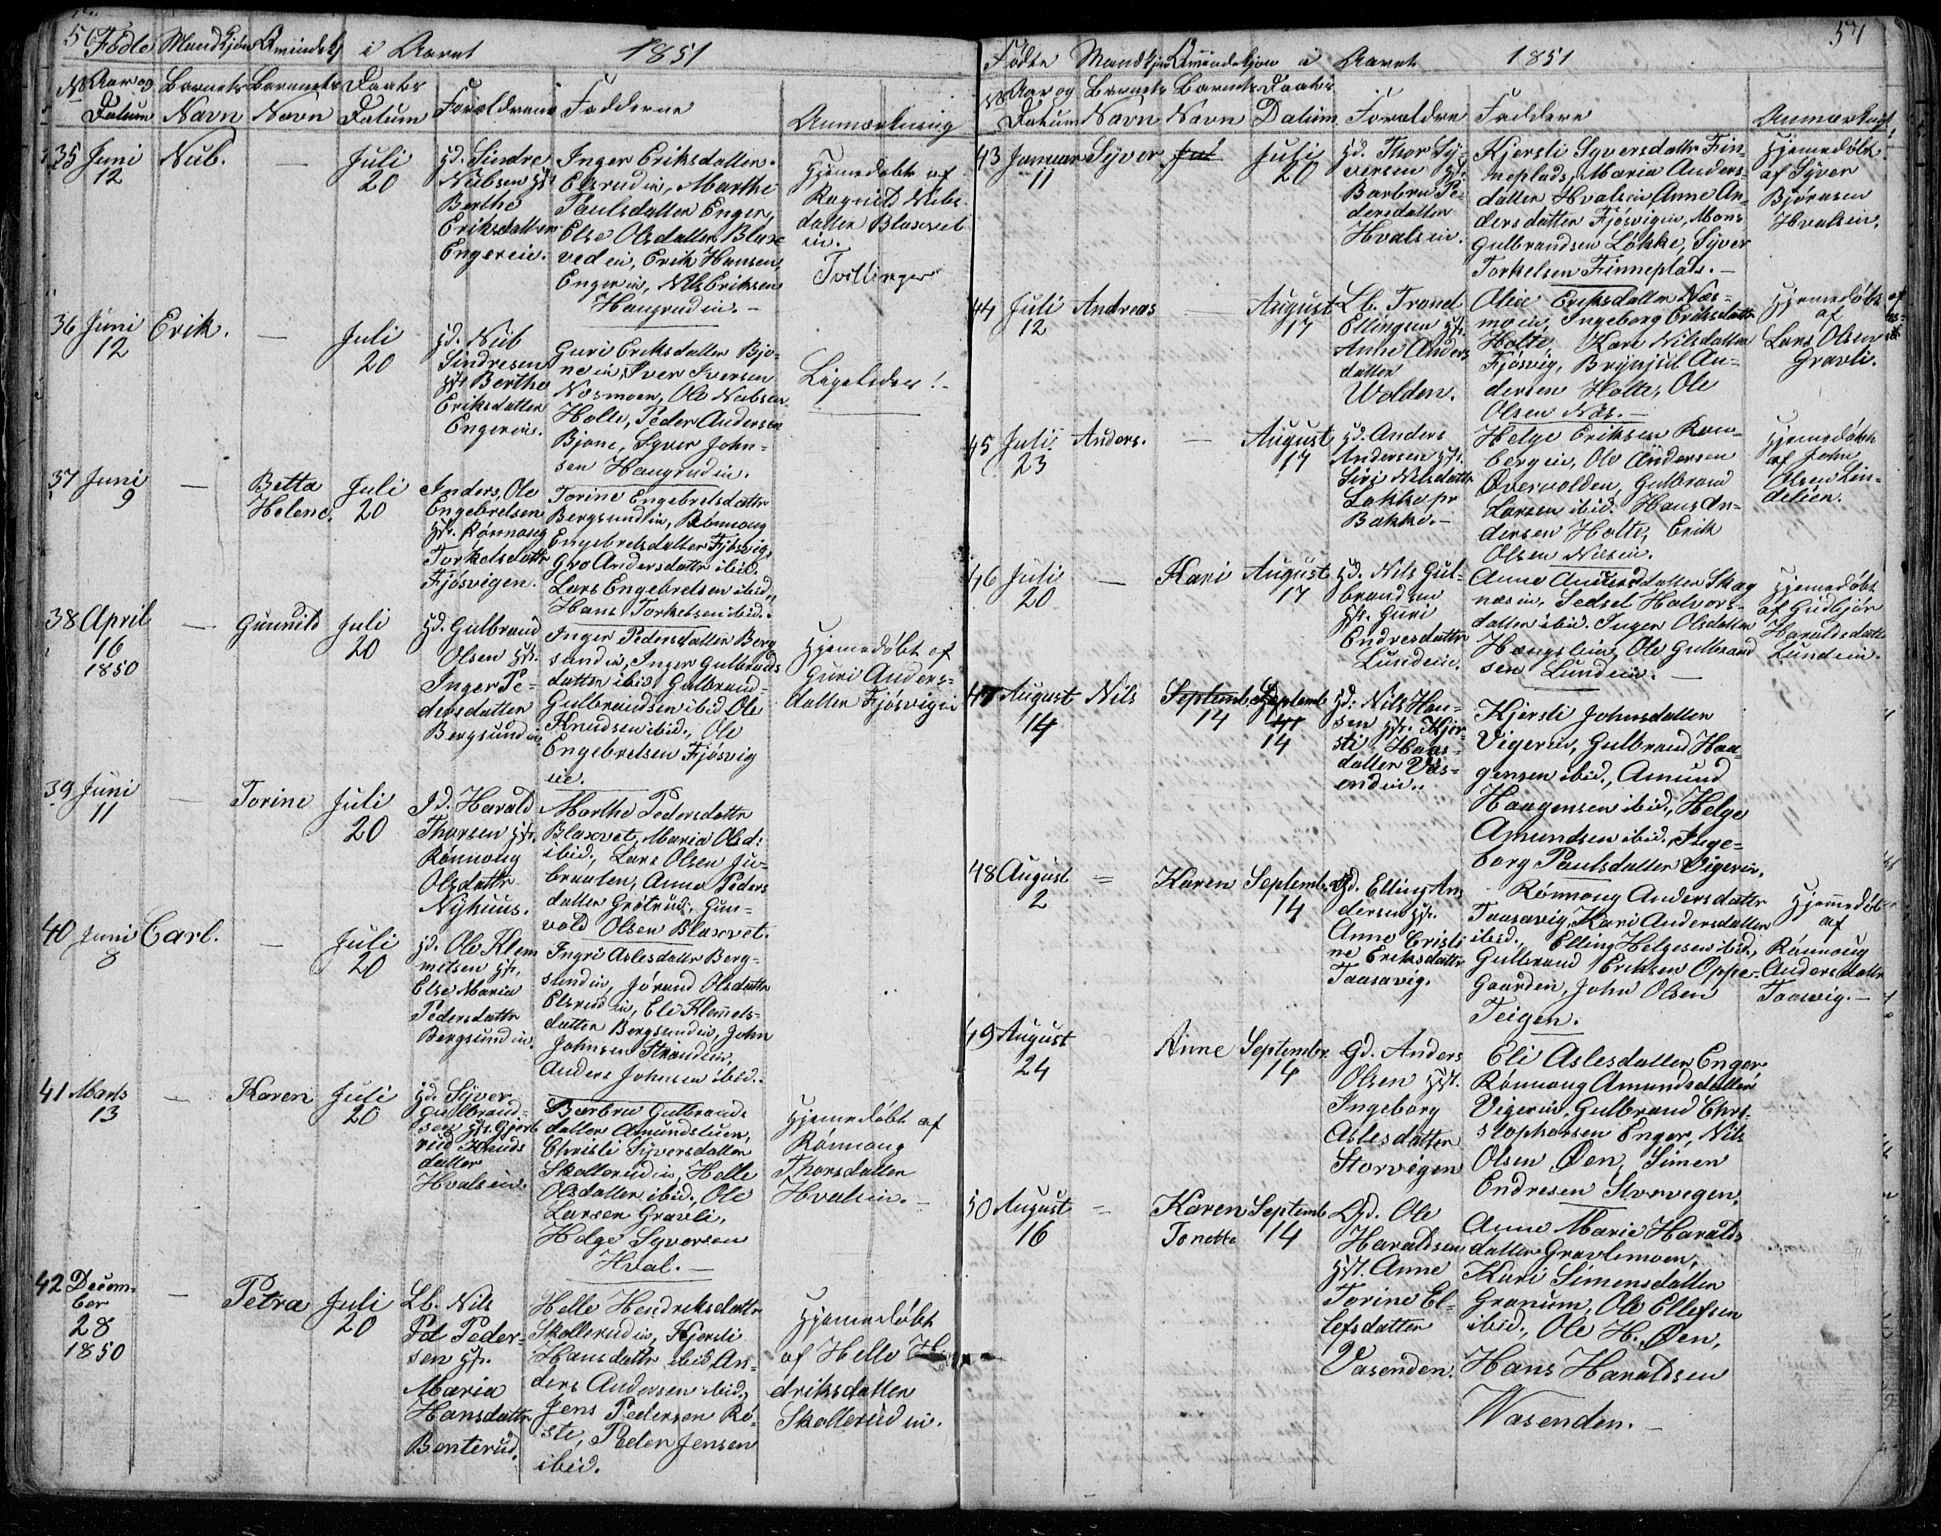 56 Födte Mandkjön Qvindekj i Aaret 1851
No Aar og Datum Barnets Navn Barnets Navn Daabs Datum Forældrene Fadderne Anmærkning
35 Juni 12 Nils. — Juli 20
Hd. Sindre
Nielsen Hst.
Berthe
Eriksdatter
Engereie.
Inger Eriksdatter
Elsrudei, Marthe
Paulsdatter Enger,
Else Olsdatter Blaxe
vedei, Erik Hansen
Engerei, Nils Eriksen
Haugrudei. —
Hjemedöbt af
Ragnild Nils
datter Blaxvet
ei.
Tvillinger
36 Juni 12 Erik. — Juli 20
Hd. Nils
Sindresen
Hst Berthe
Eriksdatter
Engereie.
Guri Eriksdatter Bjo-
neei, Iver Iversen
Næsmoen, Ole Nielsen
Holte, Peder Andersen
Bjone, Syver John-
sen Haugrudei.
Ligeledes! —
37 Juni 9 — Betta Helene. Juli 20
Inders. Ole
Engebretsen
Hst. Rønnaug
Torkelsdattr
Fjösvigen.
Torine Engebretsdattr
Bergsundei, Rönnaug
Engebretsdatter Fjösvig,
Gro Andersdattr ibid.
Lars Engebretsen ibid.,
Hans Torkelsen ibid.
38 April 16 1850 — Gunnild Juli 20
Hd. Gulbrand
Olsen Hst.
Inger Pe-
dersdatter
Bergsundei
Inger Pedersdatter Berg
sundei, Inger Gulbrands
datter ibid. Gulbrand
Gulbrandsen ibid. Ole
Knudsen ibid., Ole
Engebretsen Fjösvig
eie.
Hjemedöbt af
Guri Anders-
datter Fjösvigei
39 Juni 11 — Torine Juli 20
Id. Harald
Thorsen Hst.
Rönnaug
Olsdattr
Nyhuus.
Marthe Pedersdattr
Blaxvet, Maria Olsd:
ibid., Lars Olsen Ju-
braaten, Anne Peders
datter Grötrud, Gun-
vold Olsen Blaxvet.
40 Juni 8 Carl. — Juli 20
Hd. Ole Klem
metsen Hst.
Else Maria
Pedersdattr
Bergsundei.
Ingri Aslesdattr Berg-
sundei, Jörand Olsdattr
Elsrudei, Eli Klemets-
datter Bergsundei, John
Johnsen Strandei,
Anders Johnsen ibid.
41 Marts 13 — Karen Juli 20
Hd. Syver
Gulbrand-
sen Hst. Gjert
rud Knuds
datter
Hvalsei.
Barbra Gulbrands
datter Amundstuen,
Christi Syversdatter
Skollerudei, Helle
Olsdatter ibid., Ole
Larsen Gravli,
Helge Syversen
Hval. —
Hjemedöbt af
Rönnaug
Thorsdatter
Hvalsei. —
42 Decem- ber 28 1850 — Petra Juli 20
Lb. Nils
Pd Peder-
sen Hst.
Maria
Hansdattr
Benterud.
Helle Hendriksdattr
Skollerudei, Kjersti
Hansdattr ibid. An-
ders Andersen ibid.,
Jens Pedersen Rö-
ste, Peder Jensen
ibid.
Hjemedöbt
af Helle
driksdatter
Skollerud ei.
57
Födte Mandkjön Qvindekjön i Aaret 1851
No Aar og Datum Barnets Navn Barnets Navn Daabs Datum. Forældre Faddere Anmærkng
43 Januar 11 Syver Juli 20
Hd. Thor Sy-
versen Hst.
Barbra Pe-
dersdatter
Hvalsei.
Kjersti Syversdattr Fin-
neplads, Maria Anders-
datter Hvalsei Anne An-
dersdatter Fjösvigei, Mons
Gulbrandsen Løkke, Syver
Torkelsen Finneplads. —
Hjemedöbt
af Syver
Björnsen
Hvalsei.
44 Juli 12 Andreas — August 17
Lb. Trond
Ellingsen Hst.
Anne Anders
datter
Wolden.
Olia Eriksdatter Næs-
moei, Ingeborg Eriksdattr
Holte, Kari Nilsdatter
Fjösvig, Brynjul An-
dersen Holte, Ole
Olsen Næs. —
Hjemedöbt
af
Lars Olsen
Gravli.
45 Juli 23 Anders. — August 17
Hd. Anders
Andersen Hst.
Siri Nilsdattr
Løkke pr
Bakke. —
Helge Eriksen Ram-
bergei, Ole Andersen
Øvervolden, Gulbrand
Larsen ibid. Hans An-
dersen Holte, Erik
Olsen Nilsei.
Hjemedöbt
af John
Olsen Lin-
delien.
46 Juli 20 — Kari August 17
Hd. Nils Gul-
brandsen
Hst. Guri
Endresdattr
Lundei.
Anne Andersdatter Skag
næsei, Sedsel Halvors-
datter ibid. Inger Olsdatter
Haugslei, Ole Gulbrand
sen Lundei. —
Hjemedöbt
af Gudbjör
Haraldsdattr
Lundei.
47 August 14 Nils Septembr 14 Septemb 14 14
Hd: Nils Han-
sen Hst. Kjer-
sti Haags-
datter Vas-
endei.
Kjersti Johnsdatter
Vigerei, Gulbrand Haa-
gensen ibid., Amund
Haagensen ibid., Helge
Amundsen ibid., Inge-
borg Paulsdatter Vigerei.
48 August 2 = Karen Septembr 14
Gd. Elling An
dersen Hst.
Anne Cristi
ne Eriksdattr
Taasavig.
Rønnaug Andersdattr
Taasavig, Kari Andersdatter
ibid., Elling Helgesen ibid.,
Gulbrand Eriksen Oppe-
gaarden, John Olsen
Teigen.
Hjemedöbt
af
Rönnaug
Andersdattr
Taasvig. —
49 August 24 Anne Septembr. 14
Gd. Anders
Olsen Hst.
Ingeborg
Aslesdatter
Storvegen
Eli Aslesdatter Enger
Rönnaug Amundsdatter
Vigerei, Gulbrand Chri-
stophersen Enger, Nils
Olsen Øen, Simen
Endresen Storvegen.
50 August 16 = Karen Tonette Septemb. 14
Gd. Ole
Haraldsen
Hst. Anne
Torine El-
lefsdatter
Vasenden.
Anne Marie Haralds
datter Gravlimoen,
Kari Simensdatter
Granum, Ole Ellefsen
ibid., Ole H. Øen,
Hans Haraldsen
Wasenden. —